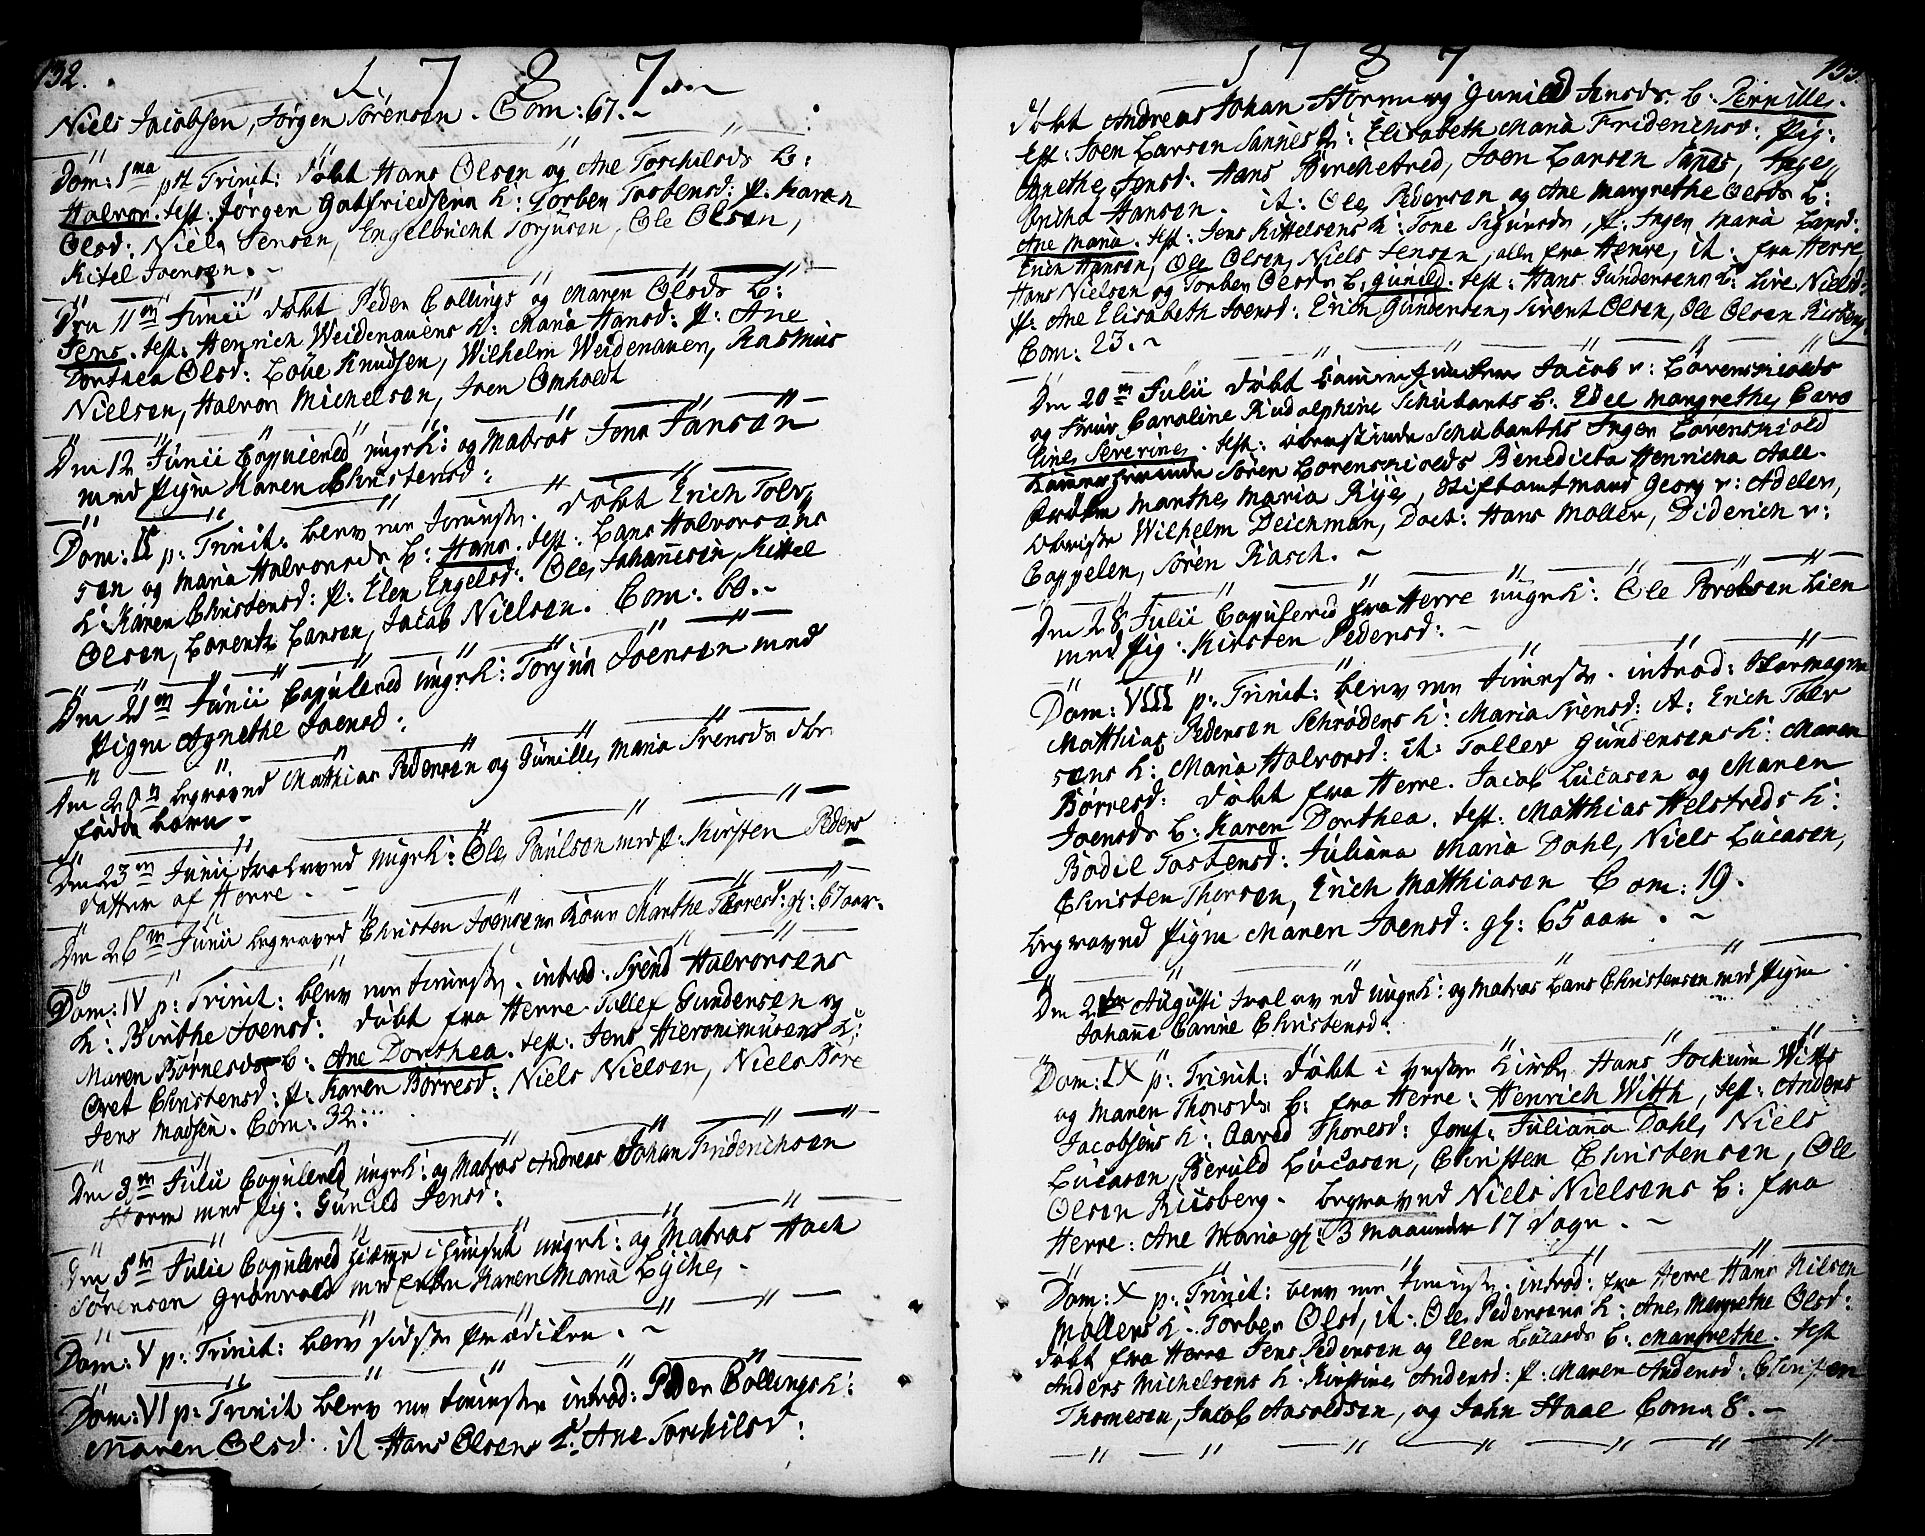 132.
1787
Niels Jacobsen, Jörgen Sörensen. Com: 67.
Dom: 1ma pst Trinit: döbt Hans Olsen og Ane Torchilsds b:
Halvor. test. Jörgen Gotfriedsens k: Torber Tostensd: p. Karen
Olsd: Niels Jensen, Engelbricht Torjusen, Ole Olsen,
Kitel Joensen.
Den 11te Junii döbt Peder Collings og Maren Olsds b:
Jens. test. Henrich Weidenauers k: Maria Hansd: p: Ane
Dorthea Olsd: Löue Knudsen, Wilhelm Weidenauer, Rasmus
Nielsen, Halvor Michelsen, Joen Omholdt
Den 12 Junii Copulered ungk: og Matros Jens Jansen
med Pigen Karen Christensd:
Dom: II p: Trinit: blev men tieniste. döbt Erich Tolv
sen og Maria Halvorsds b: Hans. test. Lars Halvorsens
k: Karen Christensd: p: Elen Engelsd: Ole Johannesen, Kittel
Olsen, Lorentz Larsen, Jacob Nielsen. Com: 60.
Den 21de Junii Copulered ungk: Torjus Joensen med
Pigen Agnethe Joensd:
begraved Mathias Pedersen og Gunille Maria Svensds
födde barn
Den 23de Junii trolovved ungk: Ole Paulson med p. Kirsten Peders
datter af Herre.
Den 26de Junii begraved Christen Joensens kone Marthe Torresd: gl: 67 aar.
Dom: IV p: Trinit: blev men tieniste. introd: Svend Halvorsens
k: Birthe Joensd: döbt fra Herre Tollef Gundersen og
Maren Börresds b: Ane Dorthea. test. Jens Hieronimusens k:
Gret Christensd: p: Karen Börresd: Niels Nielsen, Niels Böre
Jens Madsen. Com: 32.
Den 3de Julii Copulered ungk: og Matros Andreas Johan Friderichsen
Storm med Pig: Gunild Jensd:
Den 5te Julii Copulered hiemme i huuset ungk: og Matros Hach
Sörensen Grönvold med Enken Karen Maria Lyche
Dom: V p: Trinit: blev sidste Prædiken.
Dom: VI p: Trinit blev men tieniste introd: Peder Collings k:
Maren Olsd. it Hans Olsens k: Ane Torchilsd:
133
1787
döbt Andreas Johan Storm og Gunild Jensds. b. Pernille.
test: Joen Larsen Sannes k: Elisabeth Maria Friderichsd: Pig:
Anethe Jensd: Hans Birchetved, Joen Larsen Sanes,
bricht Hansen. it: Ole Pedersen og Ane Margrethe Olsds b:
Ane Maria. test: Jens Kittelsens k: Tone Sigursds, p: Inger Maria Larsd:
Erich Hansen, Ole Olsen, Niels Jensen, alle fra Herre, it: fra Herre
Hans Nielsen og Torber Olsds b. Gunild. test: Hans Gundersens k: Live Nielsd:
p: Ane Elisabeth Joensd: Erich Gundersen, Sivert Olsen, Ole Olsen Riisberg,
Com: 23.
Den 20de Julii döbt Kammerjunker Jacob v: Lövenskiolds
og Frue Caroline Rudolphine Schubarts b. Edel Margrethe Caro
line Severine. test: Schubarths Inger Lövenskiold
Kammerherre Sören Lövenskiolds Benedicta Henricha Aall.
Marthe Maria Rye, Stiftamtmand Georg v: Adeler,
Obriste Wilhelm Deichman, Doct: Hans Moller, Diderich v:
Cappelen, Sören Rasch.
Den 28 Julii Copulered fra Herre ungk: Ole Povelsen Lien
med Pig: Kirsten Pedersd:
Dom: VIII p: Trinit: blev men tieniste. introd:
Matthias Pedersen Schröders k: Maria Svensd: it: Erich Tolv
sens k: Maria Halvorsd: it: Tollev Gundersens k: Maren
Börresd: döbt fra Herre. Jacob Lucasen og Maren
Joensds b: Karen Dorthea. test: Matthias Helstreds k:
Bodil Tostensd: Juliana Maria Dahl, Niels Lucasen,
Christen Thorsen, Erich Matthiasen Com: 19.
begraved Pigen Maren Joensd: gl: 65 aar.
Den 2den Augusti trolovved ungk: og Matros Lars Christensen med Pigen
Johanne Carine Christensd:
Dom: IX p: Trinit: döbt i vestre Kirke Hans Jochum Witts
og Maren Thorsds b: fra Herre: Henrich Witth, test: Anders
Jacobsens k: Aared Thoresd: Jomf: Juliana Dahl, Niels
Lucasen, Beruld Lucasen, Christen Christensen, Ole
Olsen Riisberg. begraved Niels Nielsens b: fra
Herre: Ane Maria gl: 3 maaneder 17 dage.
Dom: X p: Trinit: blev men tieniste. introd: fra Herre Hans Nilsen
Mollers k. Torber Olsd, it. Ole Pedersens k: Ane Margrethe Olsd:
döbt fra Herre Jens Pedersen og Elen Lucasds b: Margrethe. test
Anders Michelsens k. Kirstine Andersd: p. Maren Andersd: Christen
Thomesen, Jacob Aaroldsen, og John Haae Com: 8.